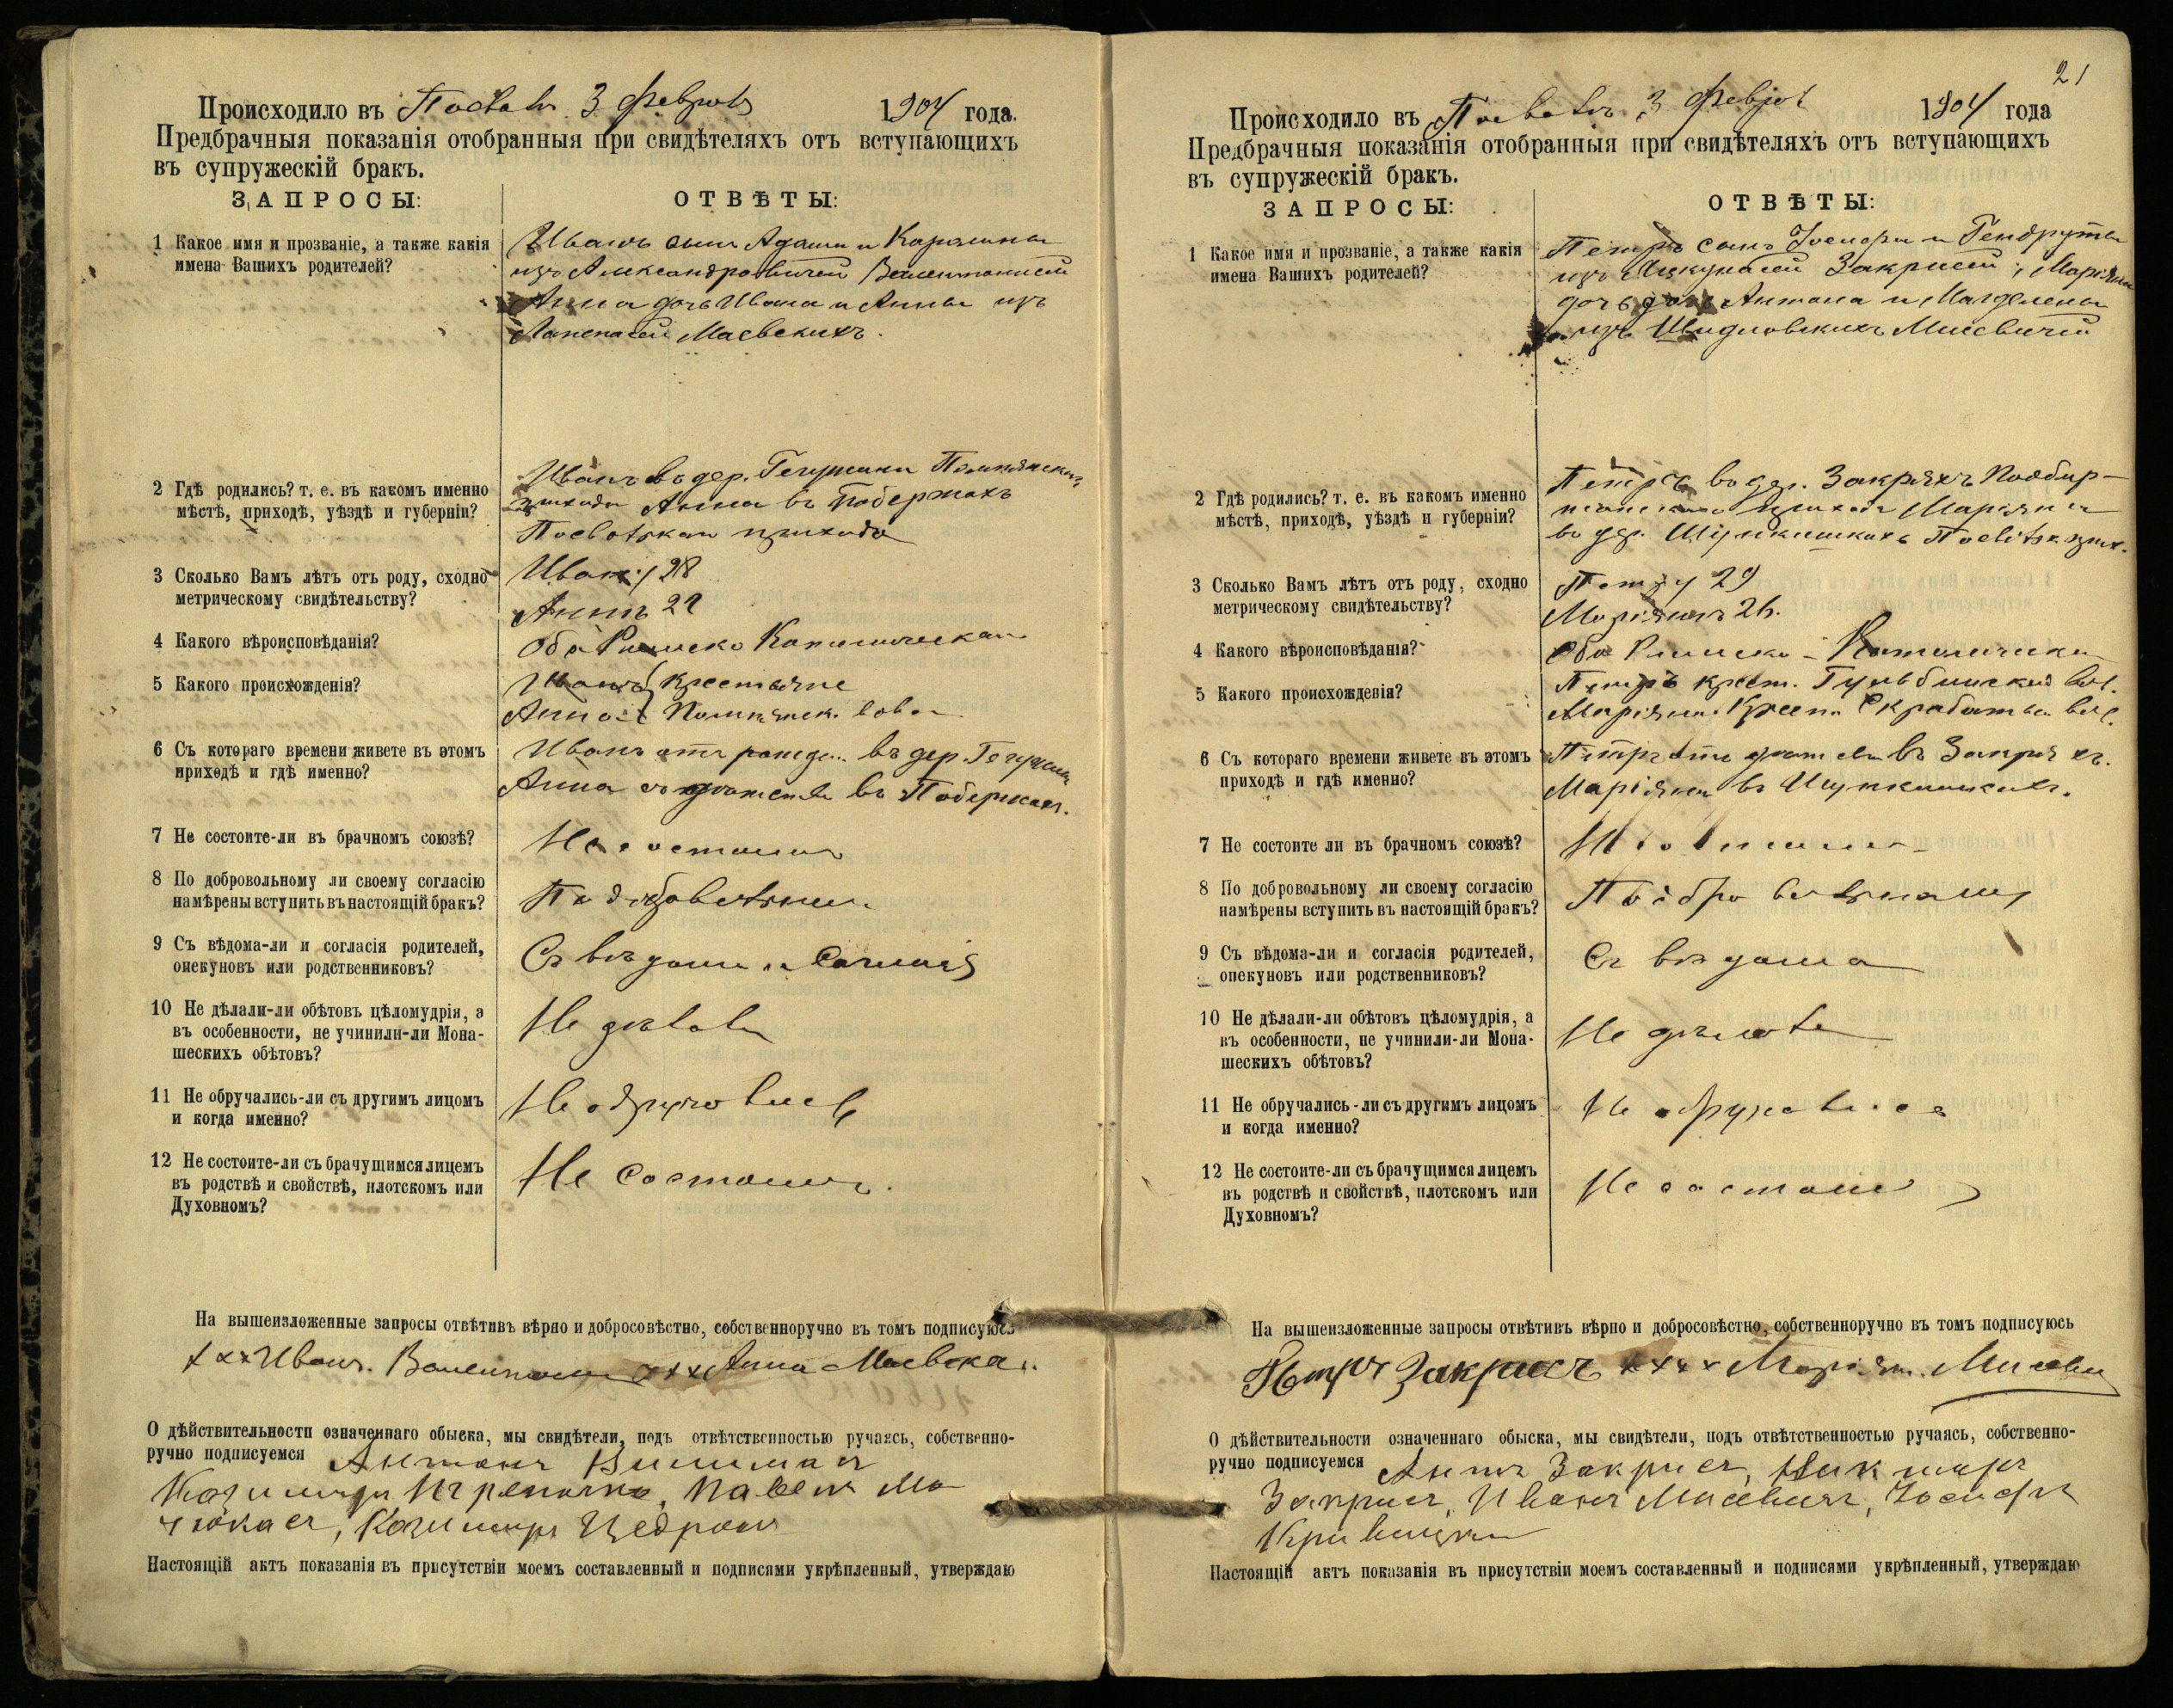 Происходило въ 3 1904 года.
Предбрачныя показанія отобранныя при свидѣтеляхъ отъ вступающихъ
въ супружескій бракъ.
ЗАПРОСЫ:
ОТВѢТЫ:
1 Какое имя и прозваніе, а также какія
имена Вашихъ родителей?
Иванъ сынъ Адама и Каролины
изъ Александровичей
Анна дочь Ивана и Анны изъ
Маевскихъ.
2 Гдѣ родились? т. е. въ какомъ именно
мѣстѣ, приходѣ, уѣздѣ и губерніи?
Иванъ въ дер.
прихода Анна въ Побержахъ
прихода
3 Сколько Вамъ лѣтъ отъ роду, сходно
метрическому свидѣтельству?
Ивану 28
Аннѣ
4 Какого вѣроисповѣданія?
Оба Римско Католическаго
5 Какого происхожденія?
Иванъ крестьяне
Анна
6 Съ котораго времени живете въ этомъ
приходѣ и гдѣ именно?
Иванъ отъ рожде въ дер.
Анна въ Побержахъ.
7 Не состоите-ли въ брачномъ союзѣ?
Не состоимъ
8 По добровольному ли своему согласію
намѣрены вступить въ настоящій бракъ?
По добровольному
9 Съ вѣдома-ли и согласія родителей,
опекуновъ или родственниковъ?
Съ вѣдома и согласія
10 Не дѣлали-ли обѣтовъ цѣломудрія, а
въ особенности, не учинили-ли Мона-
шескихъ обѣтовъ?
Не дѣлали
11 Не обручались-ли съ другимъ лицомъ
и когда именно?
Не обручались
12 Не состоите-ли съ брачущимся лицемъ
въ родствѣ и свойствѣ, плотскомъ или
Духовномъ?
Не состоимъ.
На вышеизложенные запросы отвѣтивъ вѣрно и добросовѣстно, собственноручно въ томъ подписуюсь
ххх Иванъ ххх Анна Маевска
О дѣйствительности означеннаго обыска, мы свидѣтели, подъ отвѣтственностью ручаясь, собственно-
ручно подписуемся Антонъ
Казимиръ Павелъ Ма-
Казимиръ
Настоящій актъ показанія въ присутствіи моемъ составленный и подписями укрѣпленный, утверждаю
21
Происходило въ 3 1904 года
Предбрачныя показанія отобранныя при свидѣтеляхъ отъ вступающихъ
въ супружескій бракъ.
ЗАПРОСЫ:
ОТВѢТЫ:
1 Какое имя и прозваніе, а также какія
имена Вашихъ родителей?
Петръ сынъ Іосифа и
изъ Маріяна
дочь Антона и Магдалены
изъ Шидловскихъ Мисевичей
2 Гдѣ родились? т. е. въ какомъ именно
мѣстѣ, приходѣ, уѣздѣ и губерніи?
Петръ въ дер. Закряхъ
прихода Маріяна
въ дер.
3 Сколько Вамъ лѣтъ отъ роду, сходно
метрическому свидѣтельству?
Петру 29
Маріянѣ
4 Какого вѣроисповѣданія?
Оба Римско-Католическаго
5 Какого происхожденія?
Петръ крест. вол.
Маріяна Крест. вол.
6 Съ котораго времени живете въ этомъ
приходѣ и гдѣ именно?
Петръ въ Закряхъ.
Маріяна въ
7 Не состоите ли въ брачномъ союзѣ?
Не состоимъ
8 По добровольному ли своему согласію
намѣрены вступить въ настоящій бракъ?
По добровольному
9 Съ вѣдома-ли и согласія родителей,
опекуновъ или родственниковъ?
Съ вѣдома
10 Не дѣлали-ли обѣтовъ цѣломудрія, а
въ особенности, не учинили-ли Мона-
шескихъ обѣтовъ?
Не дѣлали
11 Не обручались-ли съ другимъ лицомъ
и когда именно?
Не обручались
12 Не состоите-ли съ брачущимся лицемъ
въ родствѣ и свойствѣ, плотскомъ или
Духовномъ?
Не состоимъ
На вышеизложенные запросы отвѣтивъ вѣрно и добросовѣстно, собственноручно въ томъ подписуюсь
Петръ Закрисъ хххх Маріян.
О дѣйствительности означеннаго обыска, мы свидѣтели, подъ отвѣтственностью ручаясь, собственно-
ручно подписуемся Закрисъ,
Закрисъ, Иванъ Мисевичъ, Іосифъ
Настоящій актъ показанія въ присутствіи моемъ составленный и подписями укрѣпленный, утверждаю